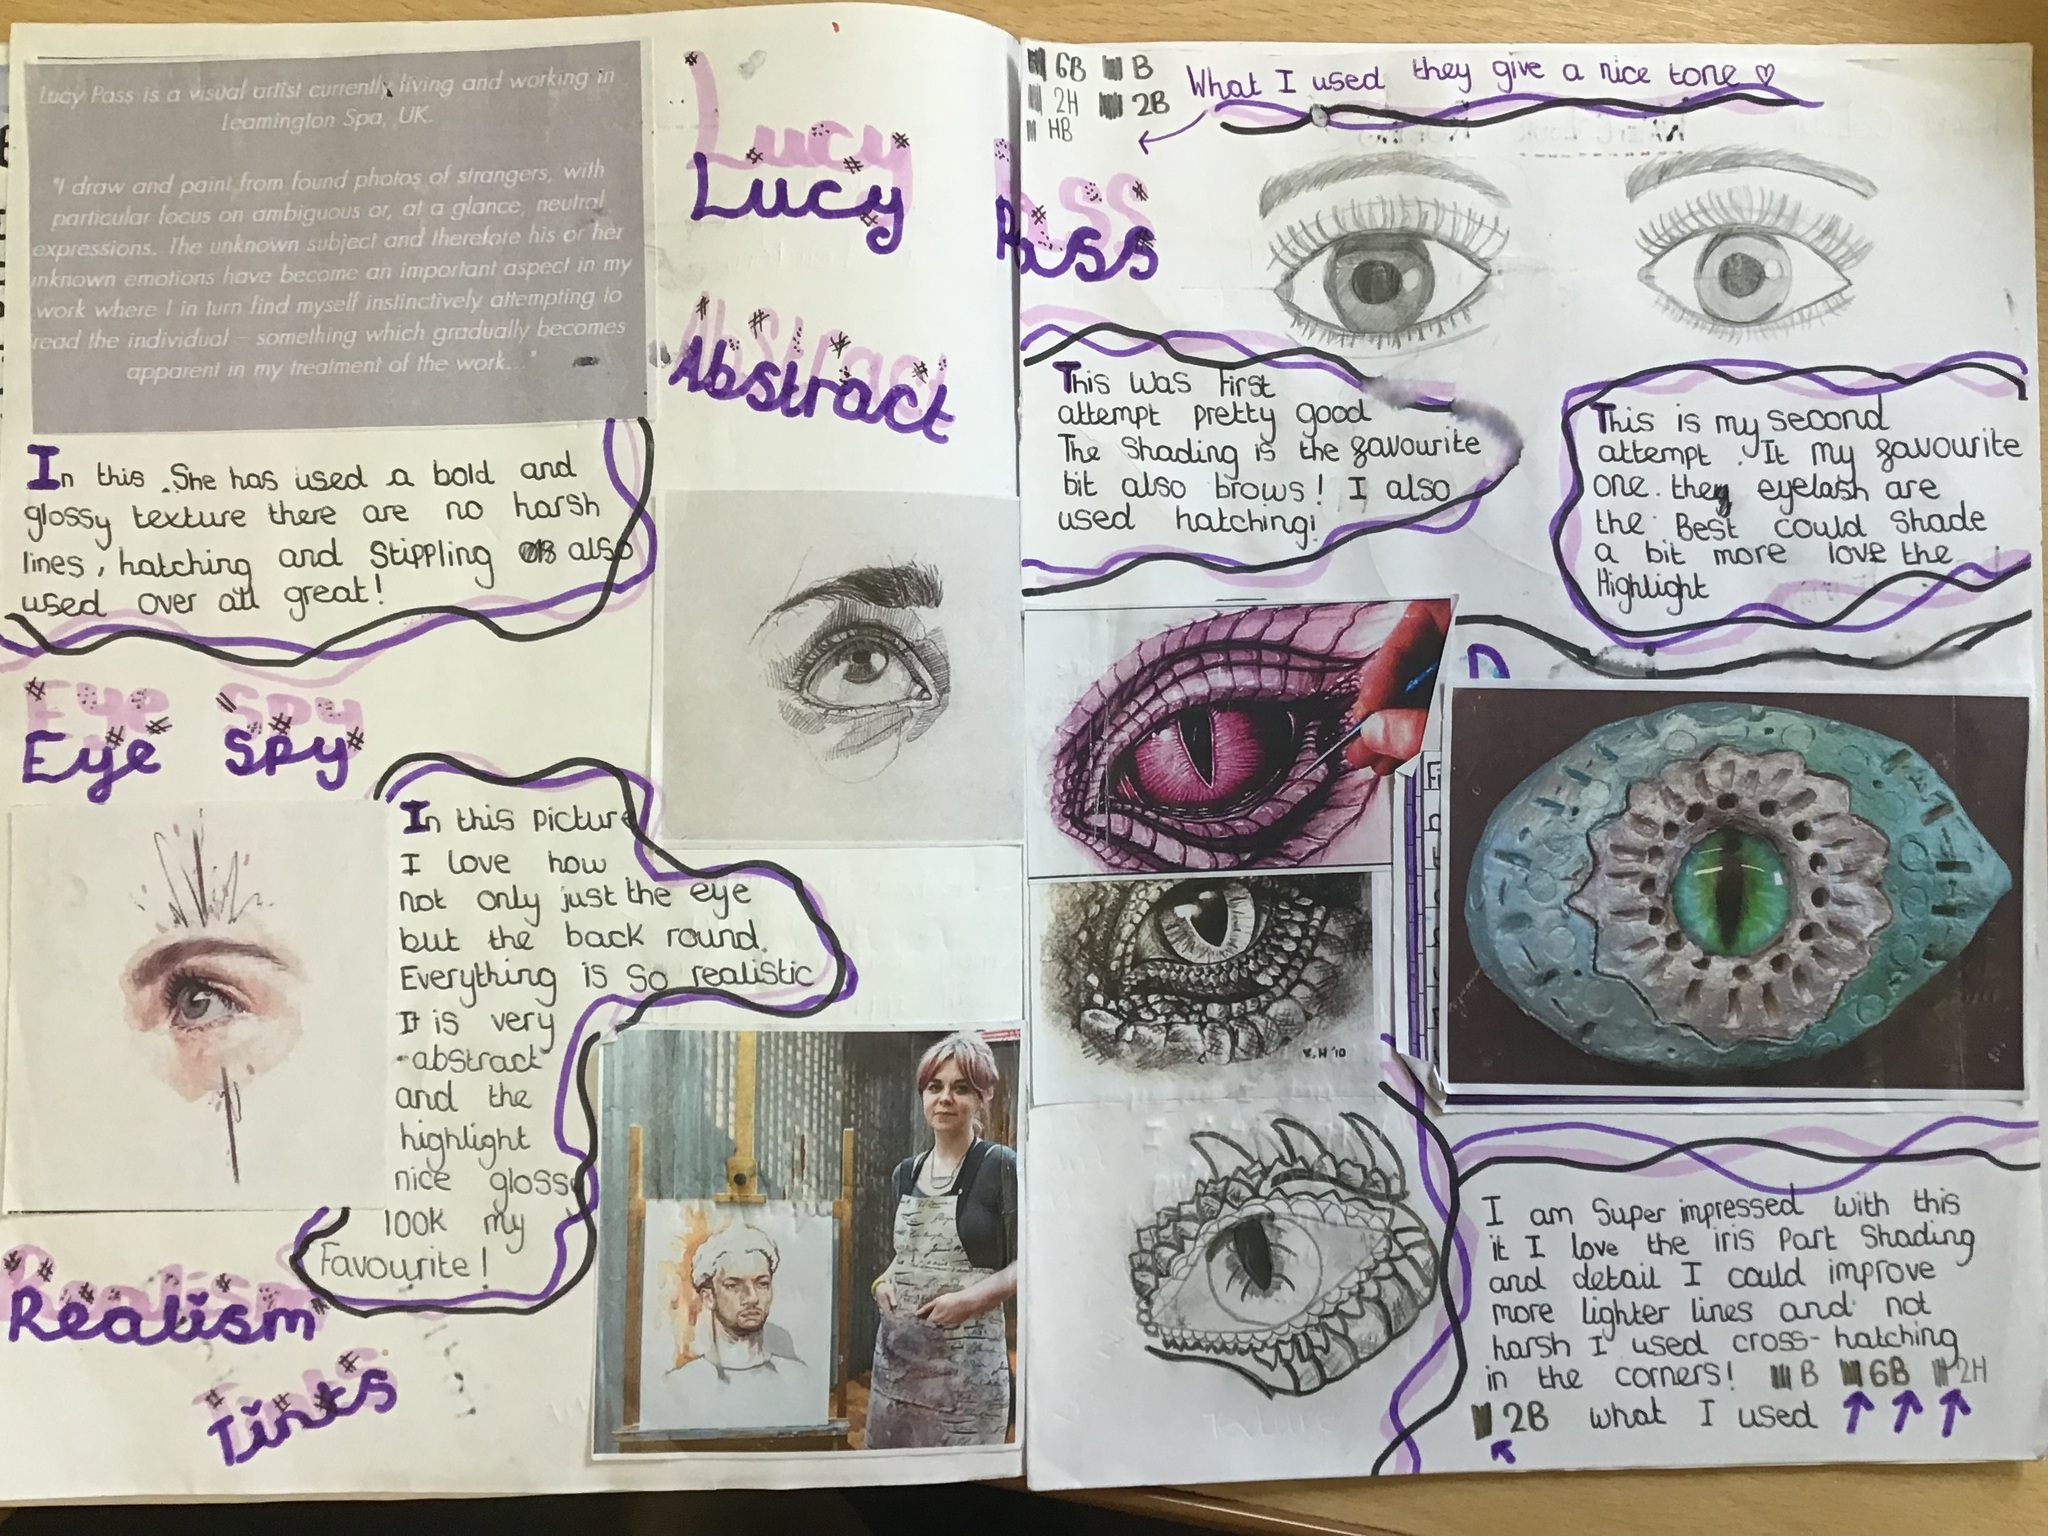 Lucy Pass is a visual artist currently living and working in
Leamington Spa, UK.
"I draw and paint from found photos of strangers, with
particular focus on ambiguous or, at a glance, neutral
expressions. The unknown subject and therefore his or her
unknown emotions have become an important aspect in my
work where I in turn find myself instinctively attempting to
read the individual – something which gradually becomes
apparent in my treatment of the work..."
Lucy Pass
Abstract
In this She has used a bold and
glossy texture there are no harsh
lines, hatching and Stippling also
used over all great!
Eye Spy
In this picture
I love how
not only just the eye
but the back round.
Everything is so realistic
It is very
abstract
and the
highlight
nice glossy
look my
Favourite!
Realism
Tints
6B B
2H 2B
HB
What I used they give a nice tone
This was first
attempt pretty good
The Shading is the favourite
bit also brows! I also
used hatching!
This is my second
attempt. It my favourite
one. they eyelash are
the Best could shade
a bit more love the
Highlight
V.H '10
I am Super impressed with this
it I love the iris Part Shading
and detail I could improve
more lighter lines and not
harsh I used cross-hatching
in the corners! B 6B 2H
2B what I used